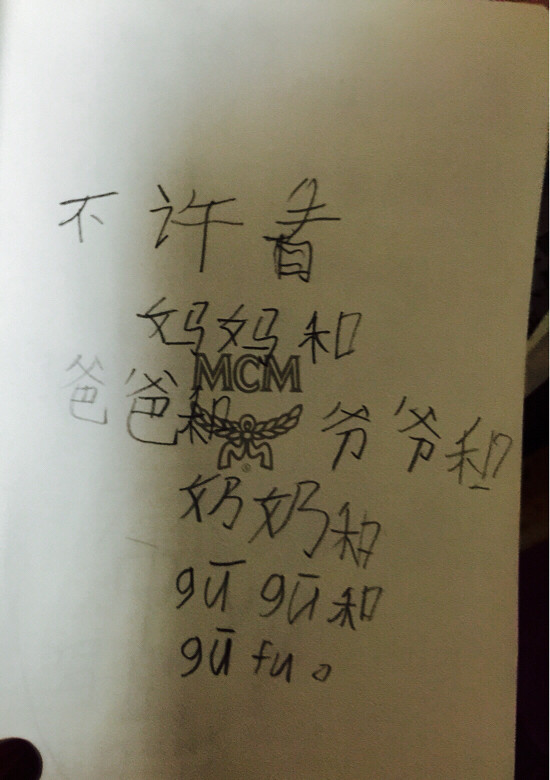 不许看
妈妈和
MCM
爸爸和爷爷和
奶奶和
gū gū和
gū fu。